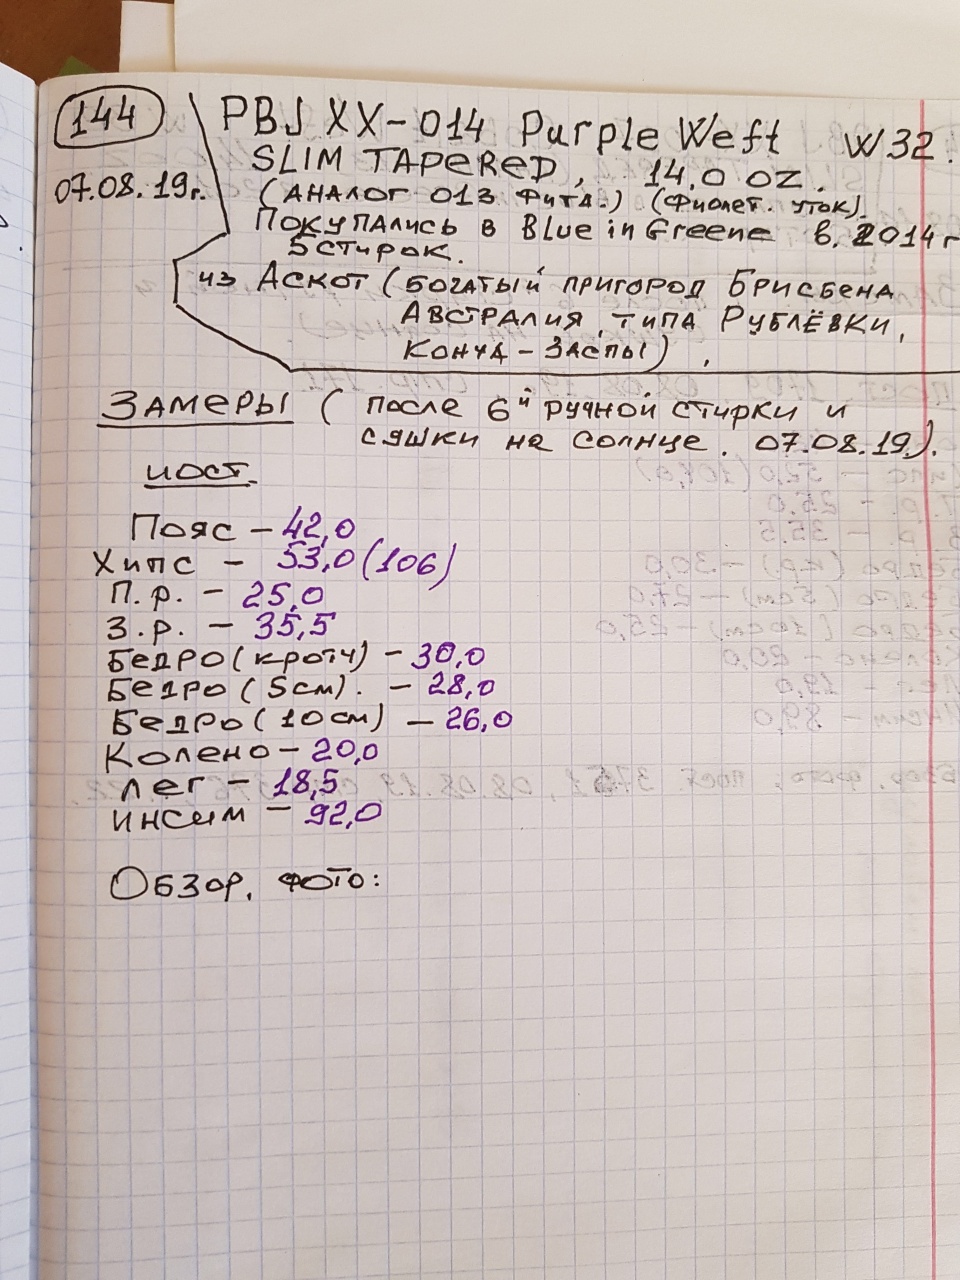 144
PBJ XX-014 Purple Weft W32.
SLIM TAPERED, 14.0 OZ.
07.08.19г.
(АНАЛОГ 013 ФИТА.) (ФИОЛЕТ. УТОК).
ПОКУПАЛИСЬ В Blue in Greene в 2014 г
5 СТИРОК.
ИЗ АСКОТ (БОГАТЫЙ ПРИГОРОД БРИСБЕНА
АВСТРАЛИЯ, ТИПА РУБЛЁВКИ,
- ЗАСПЫ),
ЗАМЕРЫ (ПОСЛЕ 6й РУЧНОЙ СТИРКИ И
СУШКИ НА СОЛНЦЕ. 07.08.19).
ПОСТ.
ПОЯС - 42,0
ХИПС - 53,0 (106)
П.р. - 25,0
З.р. - 35,5
БЕДРО (КРОТЧ) - 30,0
БЕДРО (5см). - 28,0
БЕДРО (10см) - 26,0
КОЛЕНО - 20,0
ЛЕГ - 18,5
ИНСИМ - 92,0
ОБЗОР, ФОТО: